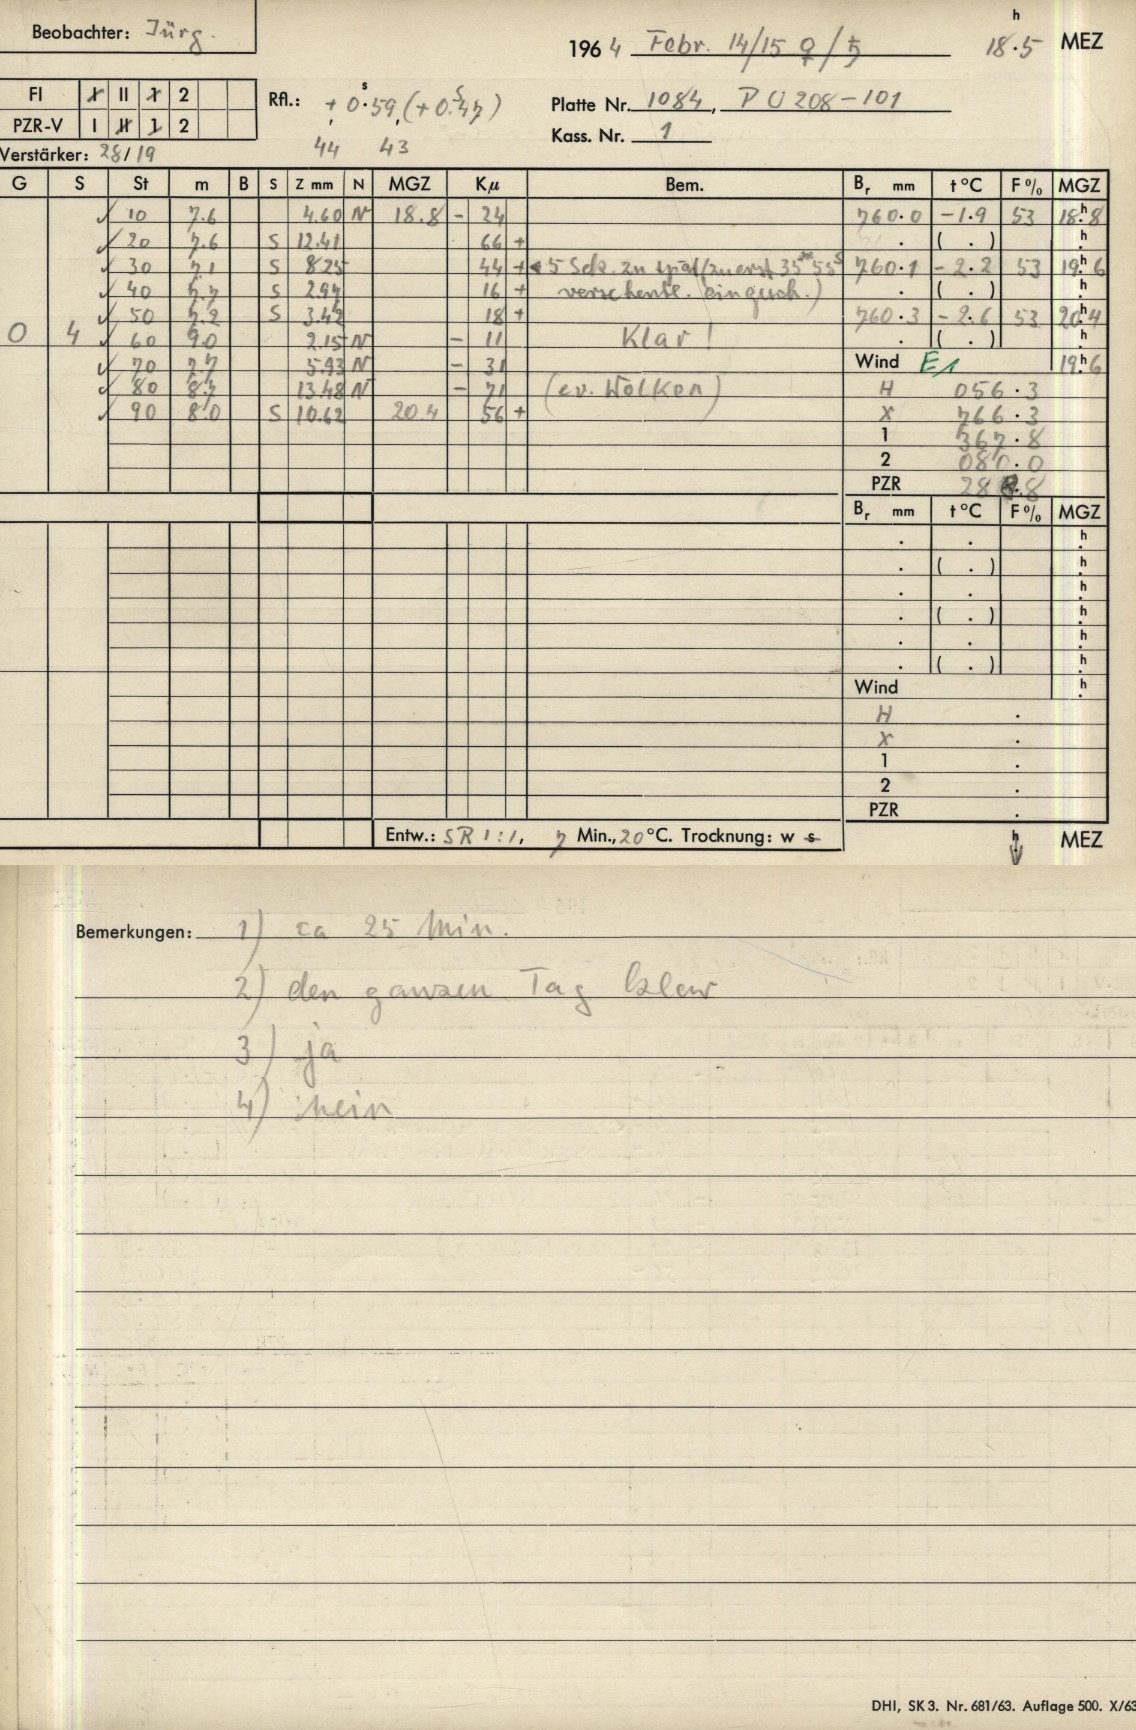 Beobachter: Jürg.
1964 Febr. 14/15 ♀/♄ 18h.5 MEZ
FI I II 1 2
PZR-V I II 1 2
Rfl.: +0s.59 (+0s.47)
44 43
Platte Nr. 1084, PU 208-101
Kass. Nr. 1
Verstärker: 28/19
G S St m B S Z mm N MGZ Kμ Bem. Br mm t °C F % MGZ
10 7.6 4.60 N 18.8 - 24 760.0 -1.9 53 18h.8
20 7.6 S 12.41 66 + . ( . ) h.
30 7.1 S 8.25 44 + 5 Sek. zu spät (zuerst 35m 55s 760.1 -2.2 53 19h.6
40 7.7 S 2.97 16 + versehentl. eingesch.) . ( . ) h.
50 7.2 S 3.42 18 + 760.3 -2.6 53 20h.4
0 4 60 9.0 2.15 N - 11 Klar! . ( . ) h.
70 7.7 5.93 N - 31 Wind E1 19h.6
80 8.7 13.48 N - 71 (ev. Wolken) H 056.3
90 8.0 S 10.62 20.4 56 + X 766.3
1 367.8
2 080.0
PZR 288.8
Br mm t °C F % MGZ
. . h.
. ( . ) h.
. . h.
. ( . ) h.
. . h.
. ( . ) h.
Wind h.
H .
X .
1 .
2 .
PZR .
Entw.: SR 1:1, 7 Min., 20 °C. Trocknung: w s h MEZ
Bemerkungen: 1) ca 25 Min.
2) den ganzen Tag klar
3) ja
4) nein
DHI, SK 3. Nr. 681/63. Auflage 500. X/63